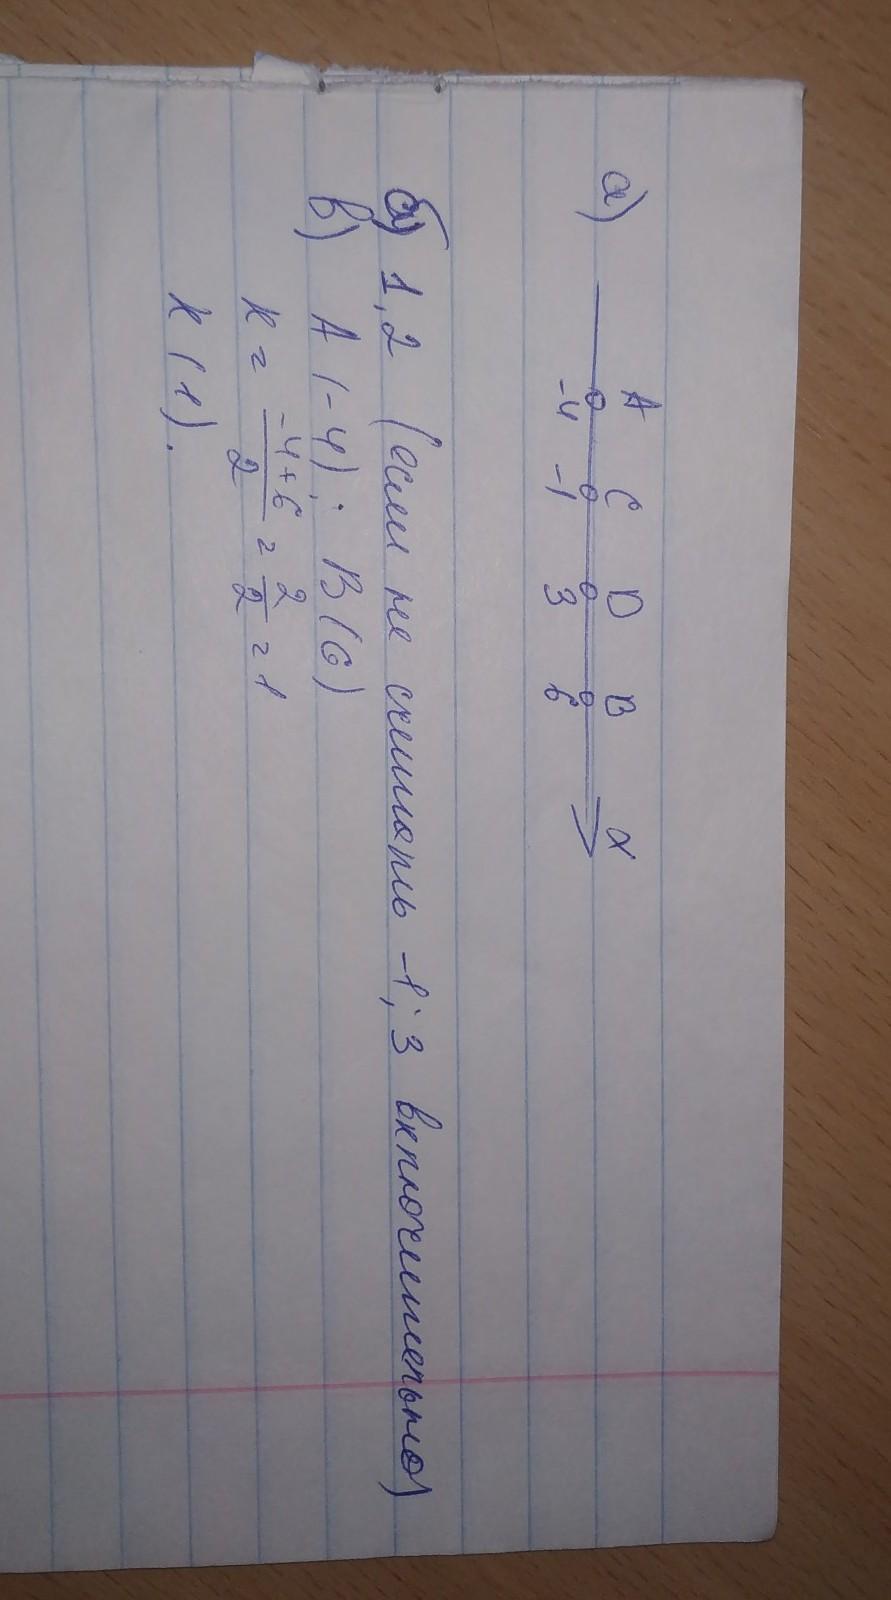 а)
A C D B x
-4 -1 3 6
б) 1,2 (если не считать -1; 3 включительно)
в) A (-4); B (6)
K = -4+6/2 = 2/2 = 1
K (1).